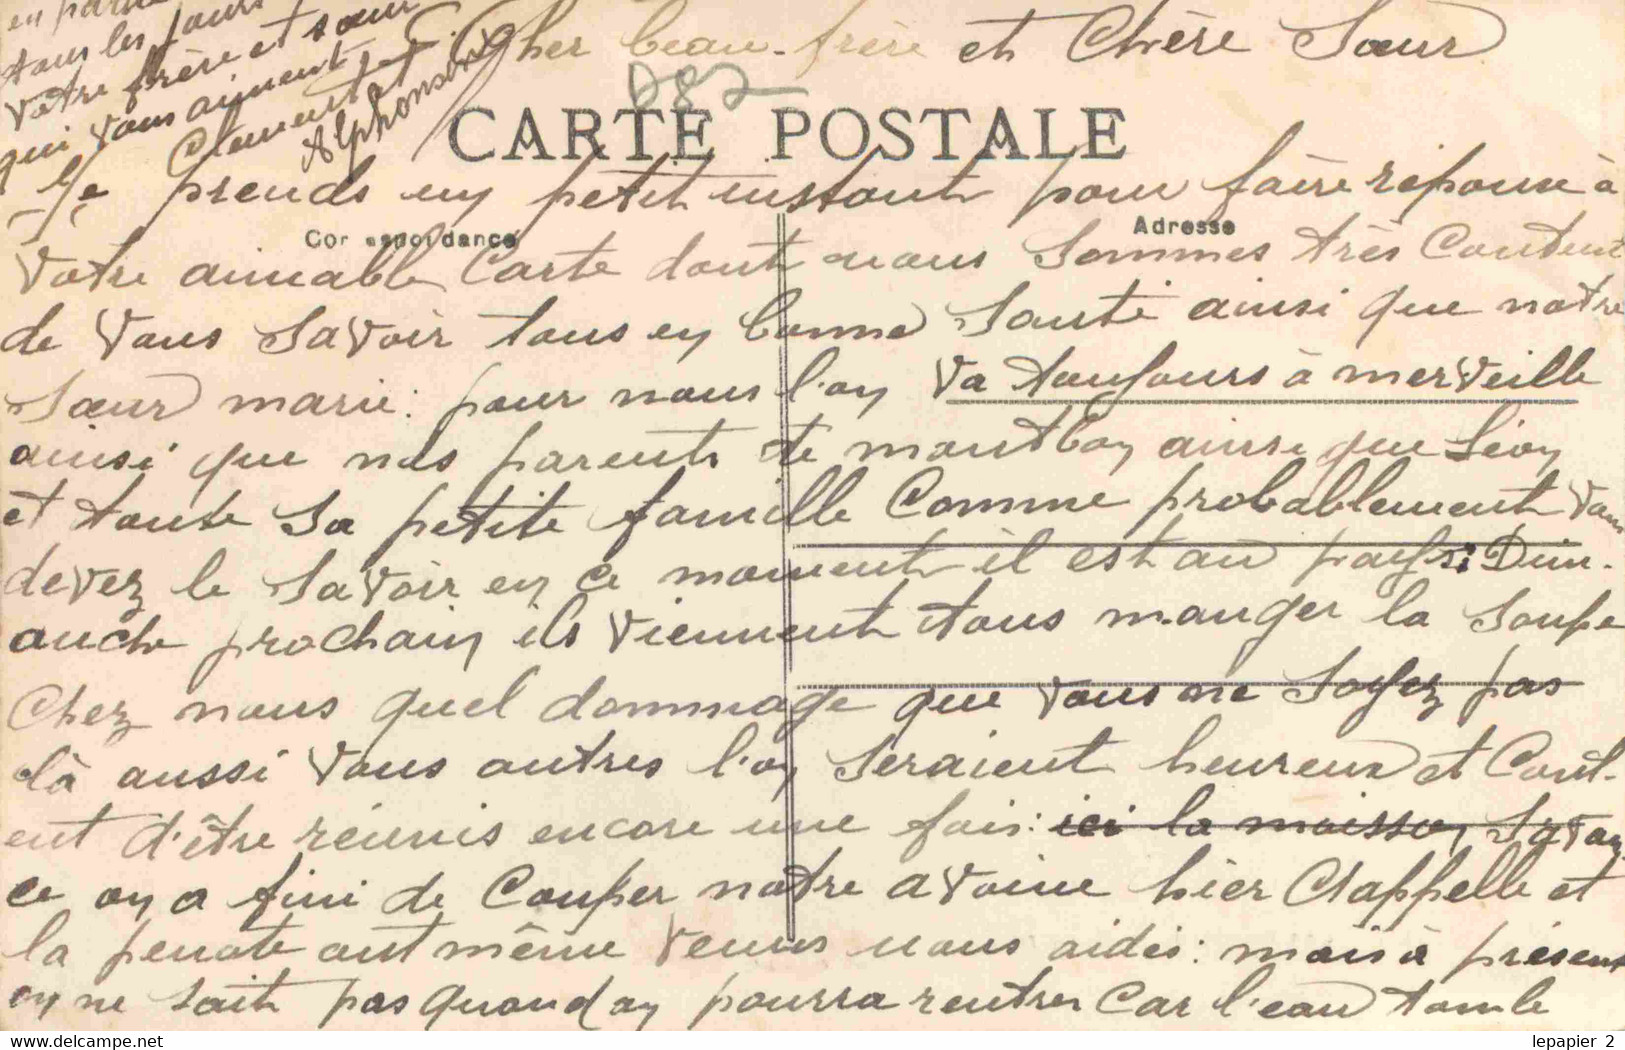 Cher beau-frère et Chère Sœur
D82
CARTE POSTALE
Je prends un petit instant pour faire réponse à
Correspondance
Adresse
Votre aimable Carte dont nous Sommes très Content
de Vous Savoir tous en bonne Santé ainsi que notre
Sœur marie: pour nous l'on va toujours à merveille
ainsi que nos parents de montboy ainsi que Léon
et toute Sa petite famille Comme probablement Vous
devez le Savoir en ce moment il est au pays: Dim-
anche prochain ils viennent tous manger la Soupe
Chez nous quel dommage que vous ne Soyez pas
là aussi Vous autres l'on Seraient heureux et Cont-
ent d'être réunis encore une fois: ici la moisson S'avan-
ce on a fini de Couper notre avoine hier Chappelle et
la penate ont même venus nous aidés: mais à présent
on ne sait pas quand on pourra rentrer Car l'eau tombe
tous les jours
Votre frère et sœur
qui vous aiment
Clement et
Alphonsine
lepapier_2